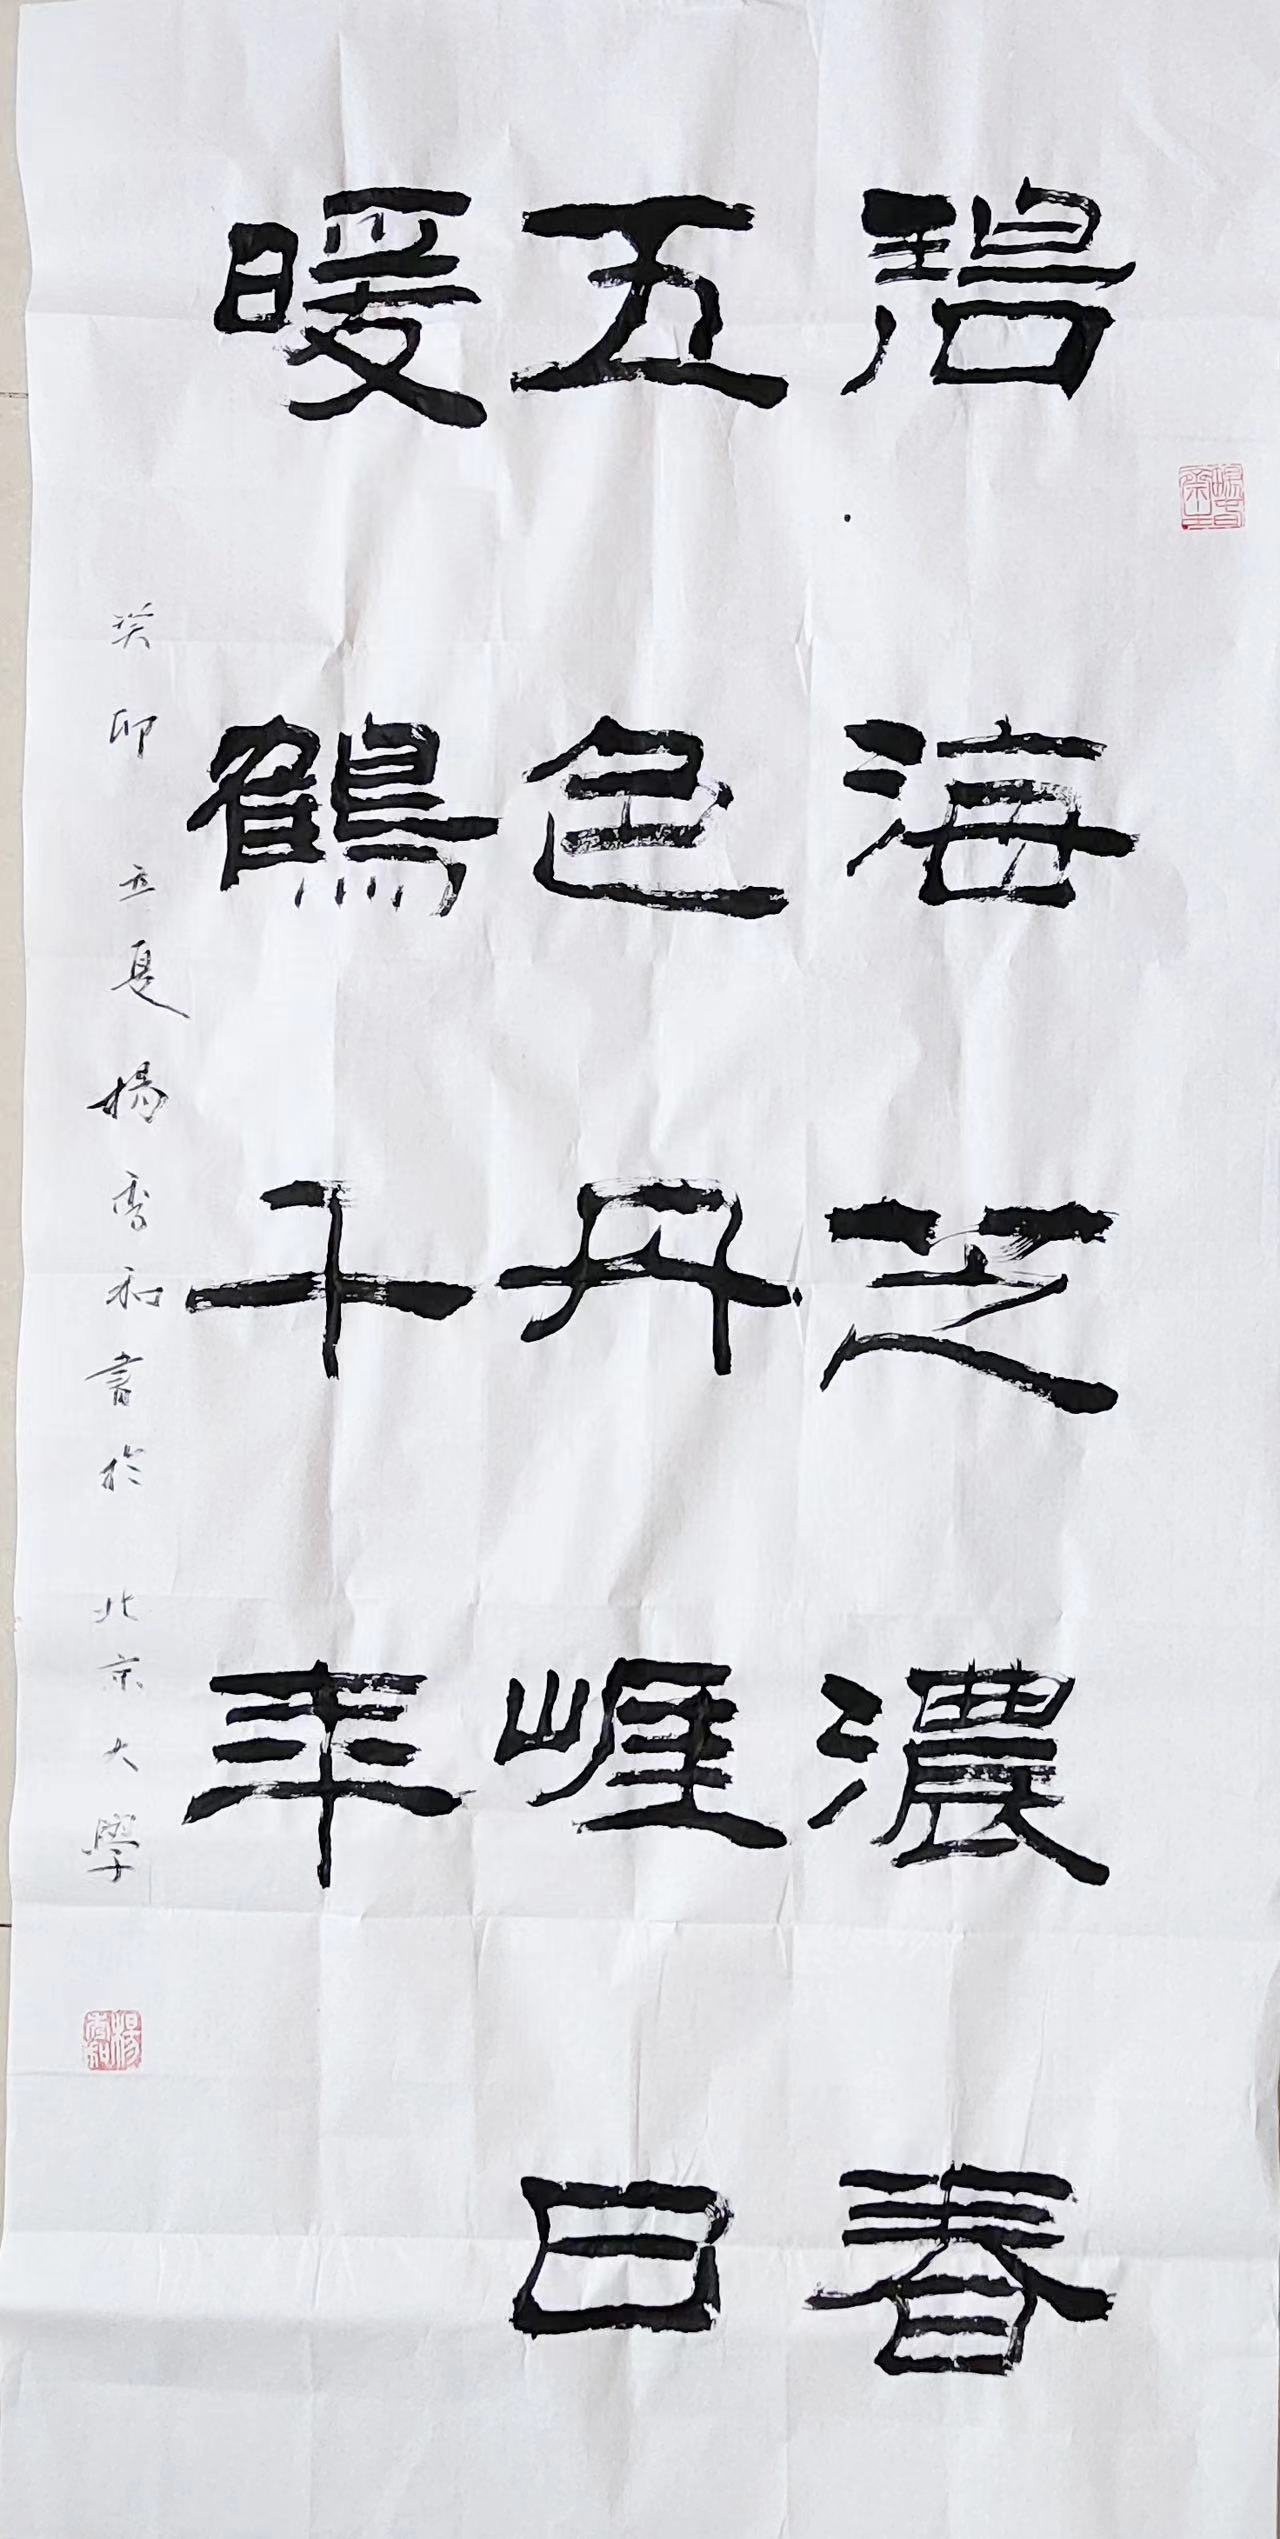 碧海芝濃春
五色丹崕日
暖鶴千年
癸卯立夏楊秀和書於北京大學